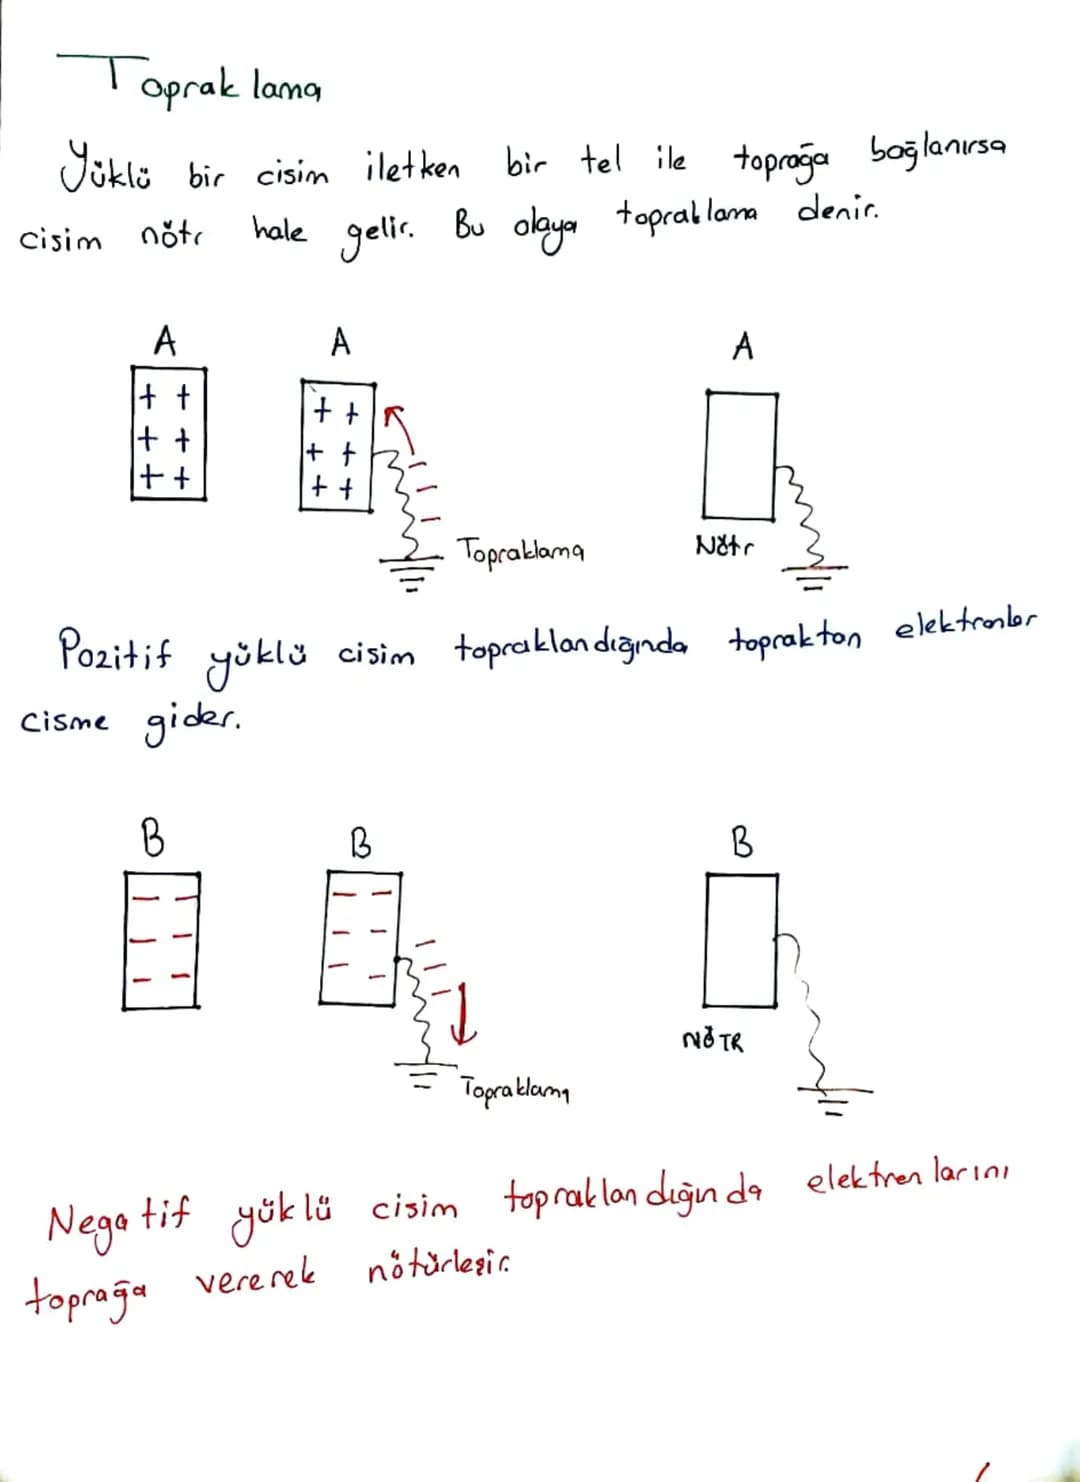 Topraklama
Yüklü bir cisim iletken bir tel ile toprağa bağlanırsa
cisim nötr hale gelir. Bu olaya topraklama denir.
A A A
+ + + + 
+ + + + 
+ + + + 
Topraklama Nötr
Pozitif yüklü cisim topraklandığında topraktan elektronlar
cisme gider.
B B B
- - - -
- - - -
- - - -
NÖTR
Topraklama
Negatif yüklü cisim topraklandığında elektronlarını
toprağa vererek nötürleşir.